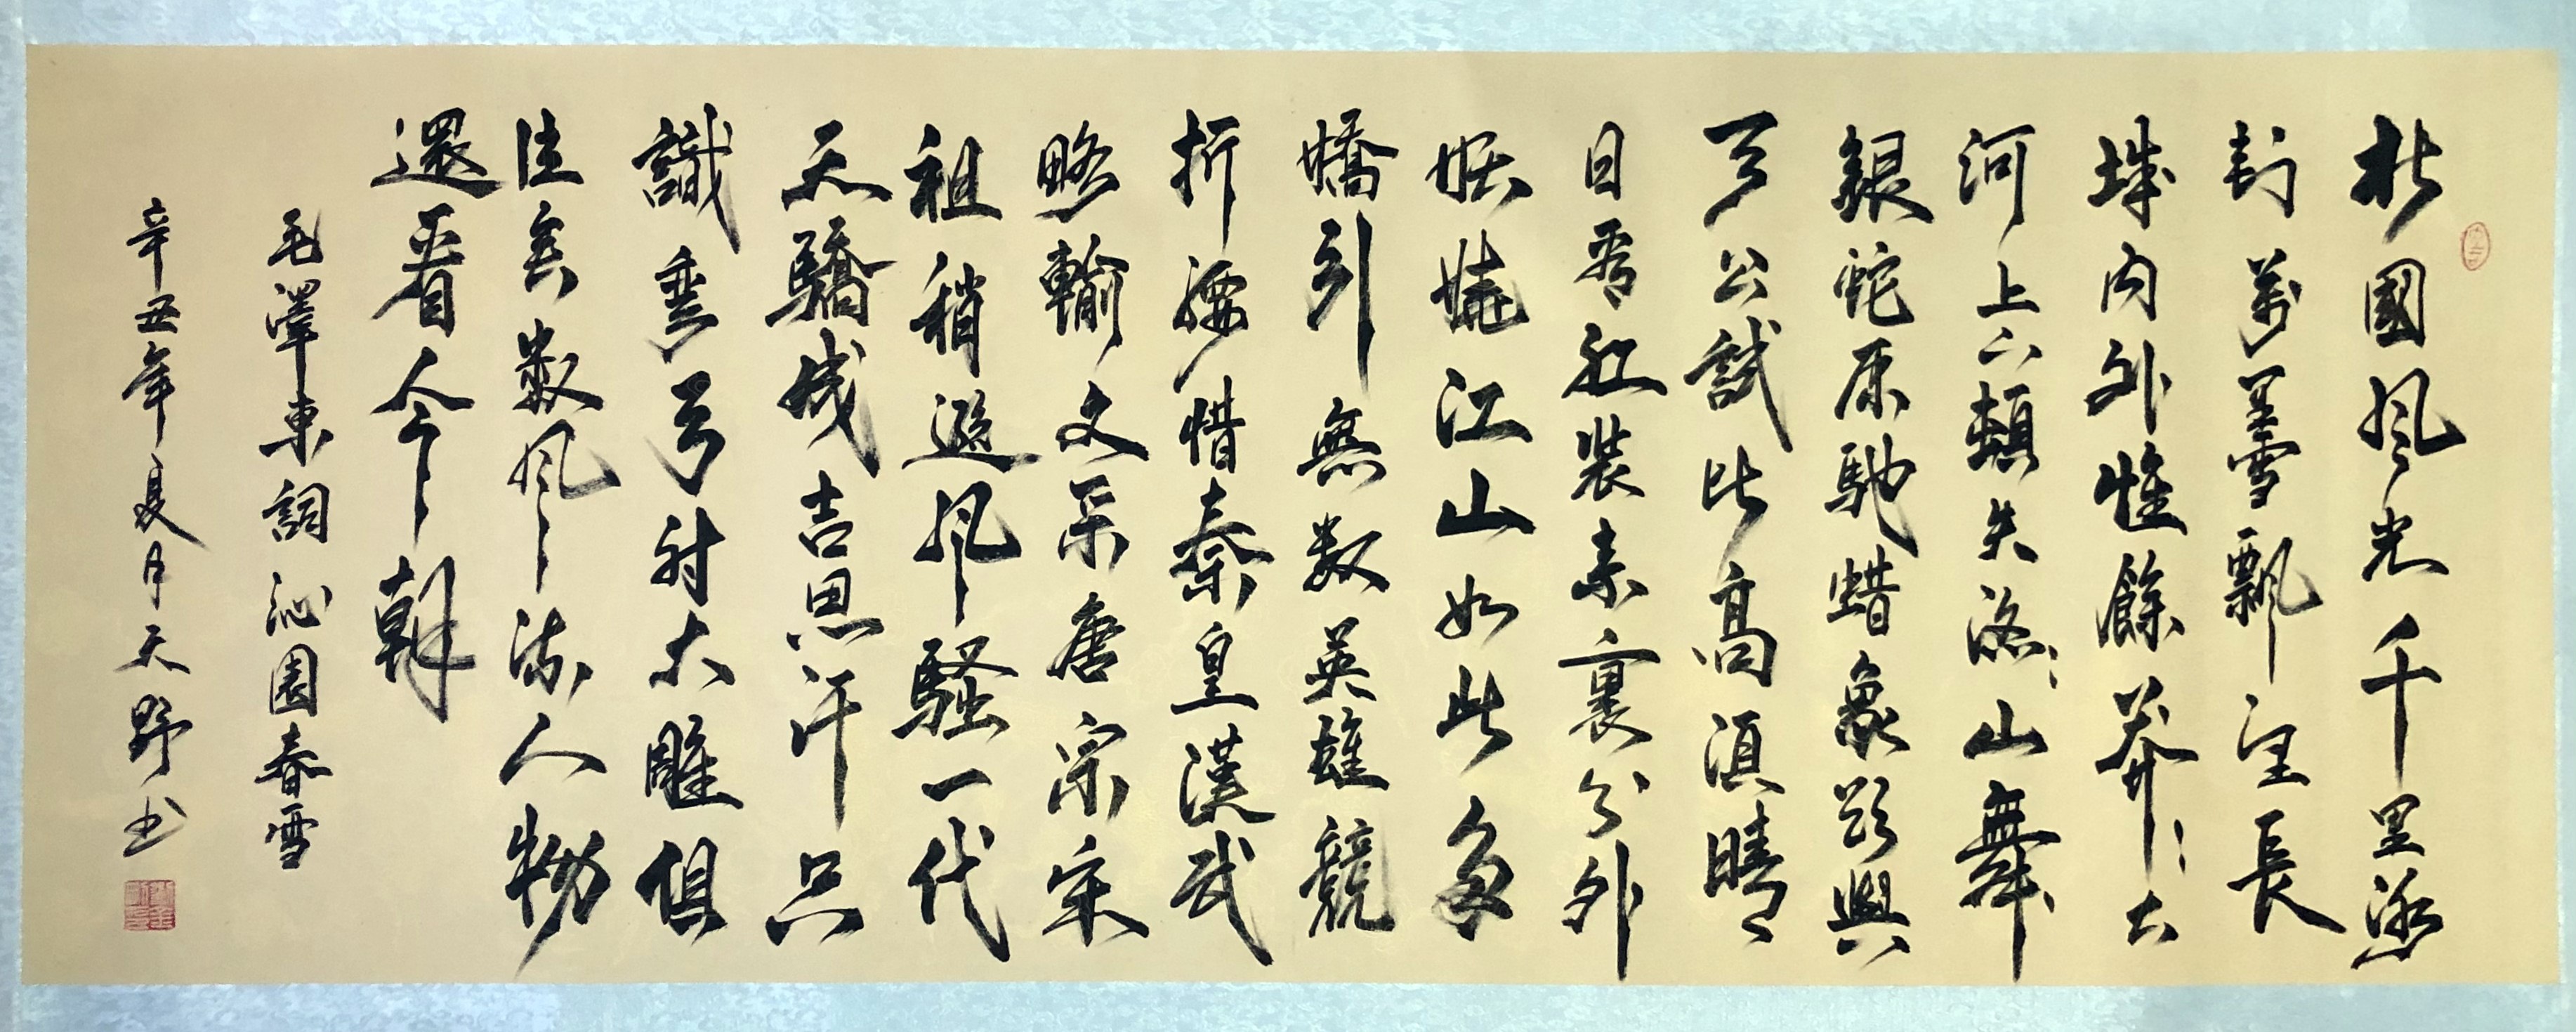 北國風光千里冰
封萬里雪飄望長
城內外惟餘莽〻大
河上下頓失滔〻山舞
銀蛇原馳蜡象欲與
天公試比高須晴
日看紅裝素裹分外
妖嬈江山如此多
嬌引無数英雄競
折腰惜秦皇漢武
略輸文采唐宗宋
祖稍遜風騷一代
天驕成吉思汗只
識彎弓射大雕俱
往矣数風流人物
還看今朝
毛澤東詞沁園春雪
辛丑年夏月天野书